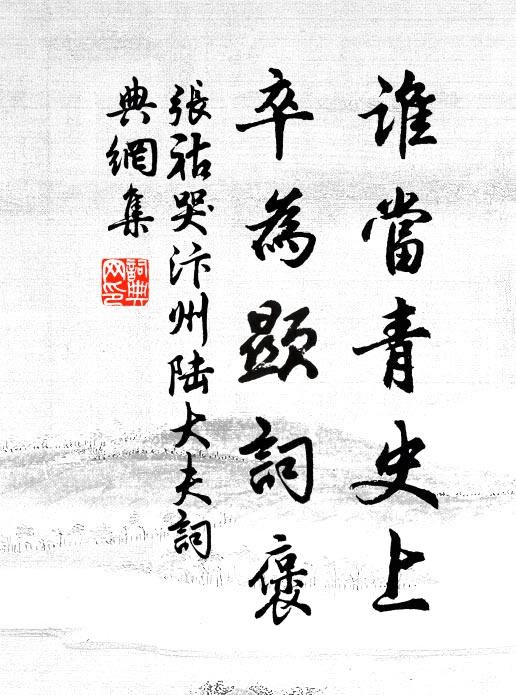 誰當青史上
卒為顯詞褒
張祜哭汴州陸大夫詞
典網集
詞典網印